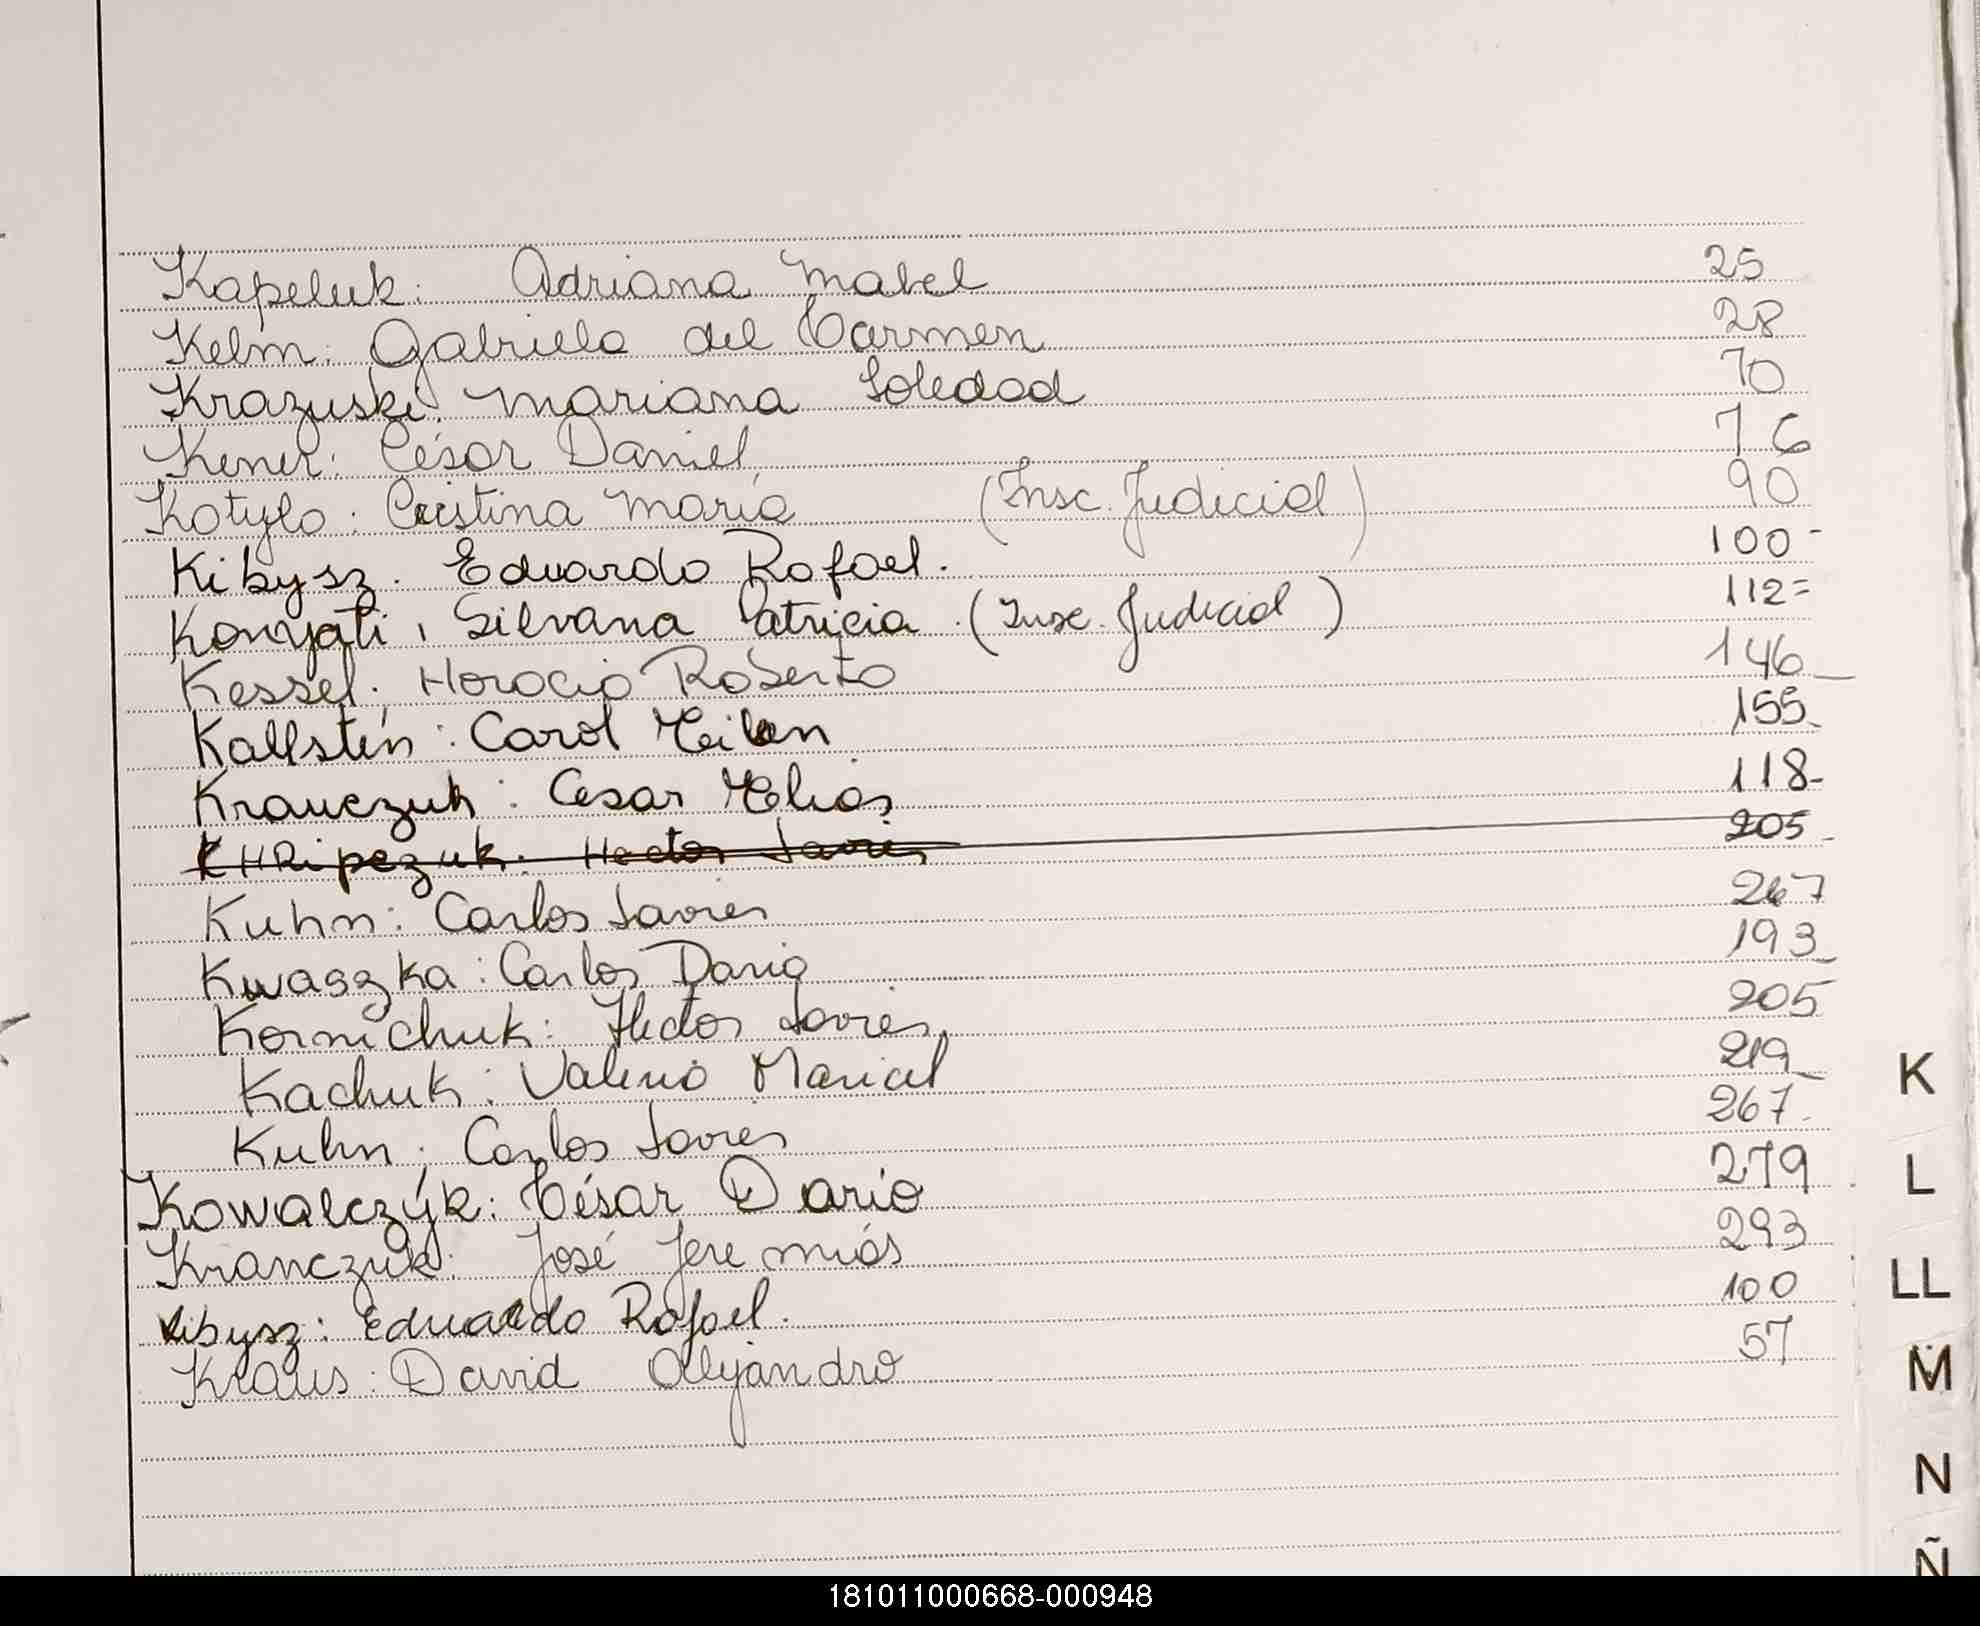 Kapeluk: Adriana Mabel 25
Kelm: Gabriela del Carmen 28
Krazuski: Mariana Soledad 70
Kener: César Daniel 76
Kotylo: Cristina María (Insc. Judicial) 90
Kibysz. Eduardo Rafael. 100-
Konyati, Silvana Patricia. (Insc. Judicial) 112=
Kessel: Horacio Roberto 146
Kallstén: Carol 155
Krauczuk: Cesar Elias 118-
Hector Javier 205
Kuhn: Carlos Javier 267
Kwaszka: Carlos Dario 193
Kornichuk: Hector Javier. 205
Kachuk: Valeria Maricel 219
K
Kuhn: Carlos Javier 267.
Kowalczyk: César Dario 279
L
Kranczuk: José Jeremías 293
LL
Kibysz: Eduardo Rafael. 100
Kraus: David Alejandro 57
M
N
Ñ
181011000668-000948